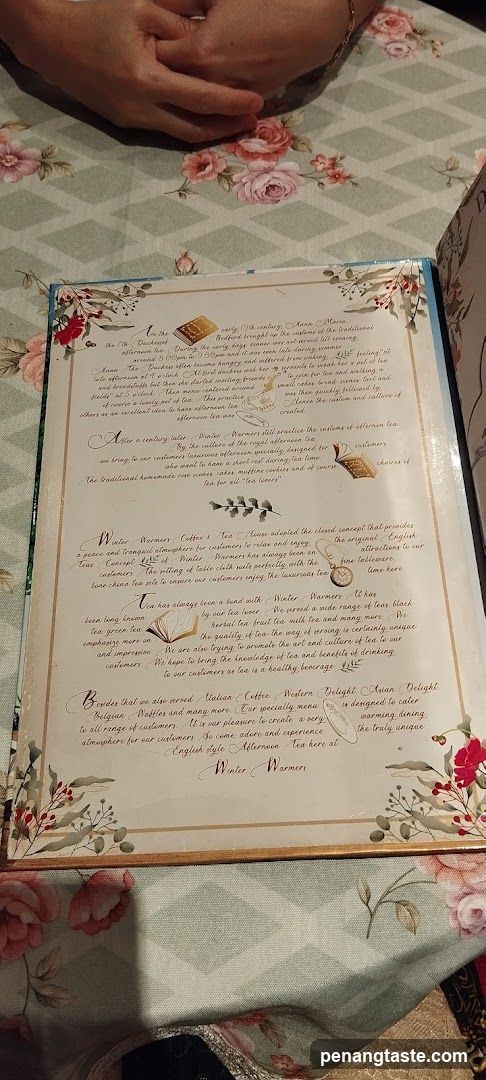 In the early 19th century, Anna Maria
the 7th Duchess of Bedford brought up the customs of the traditional
afternoon tea. During the early days, dinner was not served till evening,
around 8.00pm to 9.00pm and it was seen late during summer.
Anna The Duchess often become hungry and suffered from sinking feeling" at
late afternoon at 4 o'clock. At first duchess ask her servants to sneak her a pot of tea
and breadstuffs but then she started inviting friends to join for tea and walking a
fields" at 5 o'clock. Then menu centered around small cakes, bread, scones, tarts and
of course a lovely pot of tea. This practice was then quickly followed by
others as an excellent idea to have afternoon tea. Hence the custom and culture of
afternoon tea was created.
After a century later, Winter Warmers still practice the customs of afternoon tea.
By the culture of the royal afternoon tea
we bring to our customers luxurious afternoon specially designed for customers
who want to have a short rest during tea time.
The traditional homemade rose scones, cakes, muffins, cookies and of course choices of
tea for all "tea lovers"
Winter Warmers Coffee & Tea House adopted the closed concept that provides
a peace and tranquil atmosphere for customers to relax and enjoy the original English
Teas. Concept of Winter Warmers has always been an attractions to our
customers. The setting of table cloth suits perfectly with the fine tableware,
bone-china tea sets to ensure our customers enjoy the luxurious tea time here.
Tea has always been a bond with Winter Warmers. It has
been long known by our tea lover. We served a wide range of teas, black
tea, green tea, herbal tea, fruit tea, milk tea and many more. We
emphasize more on the quality of tea, the way of serving is certainly unique
and impressive. We are also trying to promote the art and culture of tea to our
customers. We hope to bring the knowledge of tea and benefits of drinking
to our customers as tea is a healthy beverage.
Besides that we also served Italian Coffee, Western Delight, Asian Delight,
Belgian Waffles and many more. Our specially menu is designed to cater
to all range of customers. It is our pleasure to create a very warming dining
atmosphere for our customers. So come adore and experience the truly unique
English style Afternoon Tea here at
Winter Warmers
penangtaste.com